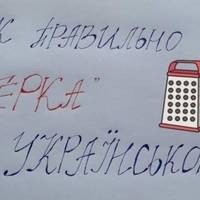 К ПРАВИЛЬНО
ЕРКА"
УКРАЇНСЬКО